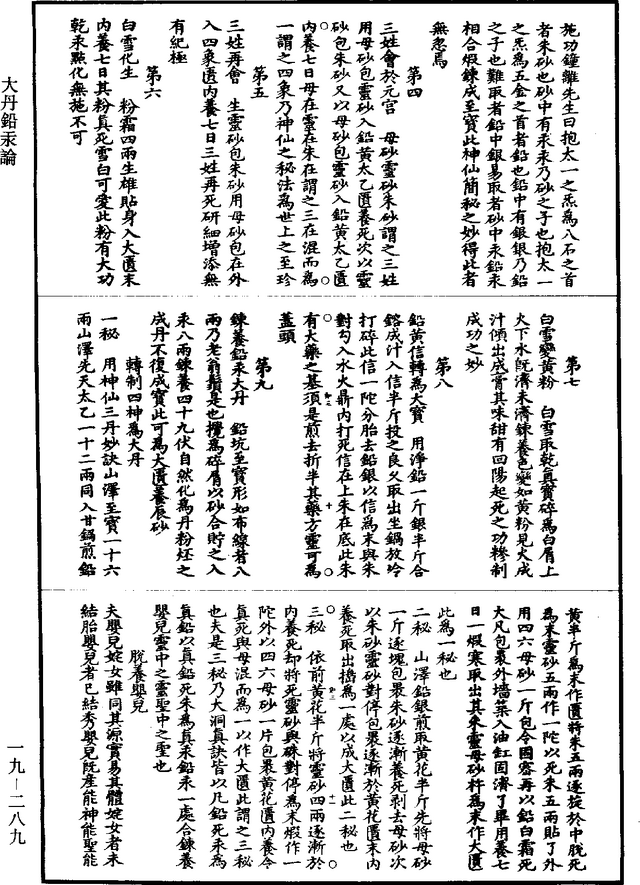 大丹鉛汞論
施功鐘離先生曰抱太一之炁爲八石之首
者朱砂也砂中有汞汞乃砂之子也抱太一
之炁爲五金之首者鉛也鉛中有銀銀乃鉛
之子也難取者鉛中銀易取者砂中汞鉛汞
相合煅鍊成至寶此神仙簡秘之妙得此者
無忽焉
第四
三姓會於元宫　母砂靈砂朱砂謂之三姓
用母砂包靈砂入鉛黄太乙匱養死次以靈
砂包朱砂又以母砂包靈砂入鉛黄太乙匱
内養七日母在靈在朱在謂之三在混而爲
一謂之四象乃神仙之秘法爲世上之至珍
第五
三姓再會　生靈砂包朱砂用母砂包在外
入四象匱内養七日三姓再死研細增添無
有紀極
第六
白雪化生　粉霜四兩生雄貼身入大匱末
内養七日其粉真死雪白可愛此粉有大功
乾汞點化無施不可
第七
白雪變黄粉　白雪取乾真實碎爲白屑上
火下水旣濟未濟鍊養色變如黄粉見火成
汁傾出成膏其味甜有回陽起死之功糝制
成功之妙
第八
鉛黄信轉爲大寶　用淨鉛一斤銀半斤合
鎔成汁入信半斤投之良久取出坐鍋放冷
打碎此信一陀分胎去鉛銀以信爲末與朱
對勾入水火鼎内打死信在上朱在底此朱
有大藥之基須是煎去折半其藥方靈可爲
蓋頭
第九
鍊養鉛汞大丹　鉛坑至寶形如布線者八
兩乃老翁鬚是也攪爲碎屑以砂合貯之入
汞八兩鍊養四十九伏自然化爲丹粉坯之
成丹不復成寶此可爲大匱養辰砂
轉制四神爲大丹
一秘　用神仙三丹妙訣山澤至寶一十六
兩山澤先天太乙一十二兩同入甘鍋煎鉛
黄半斤爲末作匱將朱五兩逐掟於中脱死
爲末靈砂五兩作一陀以死朱五兩貼了外
用四六母砂一斤包令固密再以鉛白霜死
大凡包裹外墻葉入油缸固濟了畢用養七
日一煅寒取出其朱靈母砂杵爲末作大匱
此爲一秘也
二秘　山澤鉛銀煎取黄花半斤先將母砂
一斤逐塊包裹朱砂逐漸養死剥去母砂次
以朱砂靈砂對停包裹逐漸於黄花匱末内
養死取出擣爲一處以成大匱此二秘也
三秘　依前黄花半斤將靈砂四兩逐漸於
内養死却將死靈砂與硃對停爲末煅作一
陀外以四六母砂一片包裹黄花匱内養令
真死與母混而爲一以作大匱此謂之三秘
也夫是三秘乃大洞真訣皆以凡鉛死汞爲
真鉛以真鉛死朱爲真汞鉛汞一處合鍊養
嬰兒靈中之靈聖中之聖也
脱養嬰兒
夫嬰兒姹女雖同其源實易其體姹女者未
結胎嬰兒者已結秀嬰兒旣産能神能聖能
一九—二八九